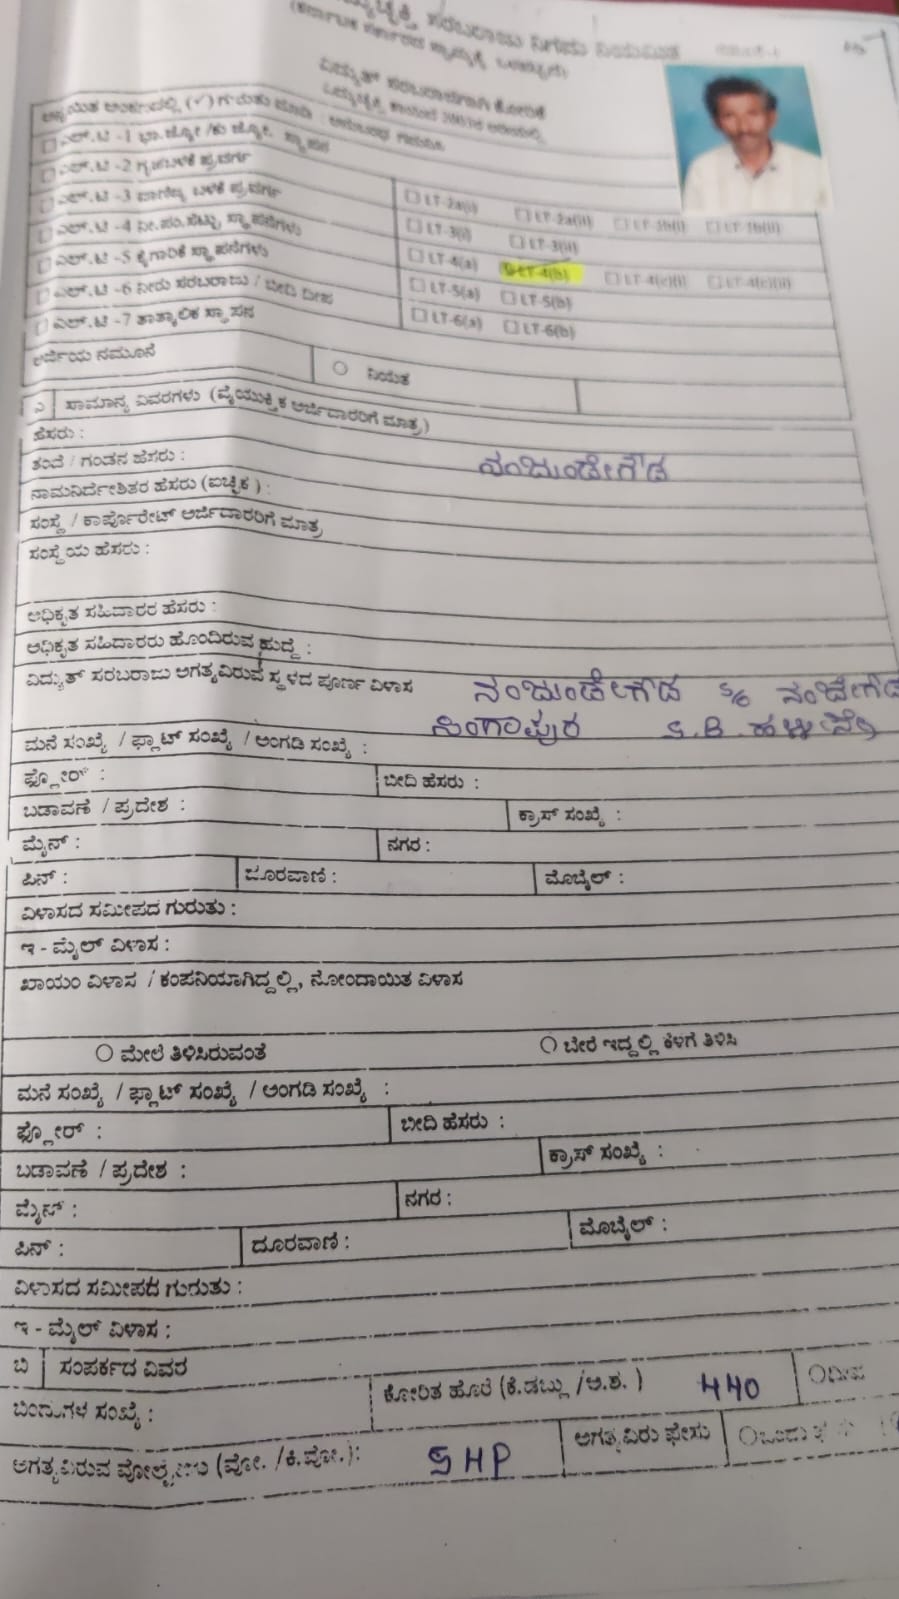 ವಿದ್ಯುತ್ ಸರಬರಾಜಿಗಾಗಿ ಕೋರಿಕೆ
□ ಎಲ್.ಟಿ -2 ಗೃಹಬಳಕೆ ಪ್ರವರ್ಗ □ LT-2a(i) □ LT-2a(ii)
□ ಎಲ್.ಟಿ -3 ವಾಣಿಜ್ಯ ಬಳಕೆ ಪ್ರವರ್ಗ □ LT-3(i) □ LT-3(ii)
□ ಎಲ್.ಟಿ -4 ನೀ.ಪಂ.ಸೆಟ್ಟು ಸ್ಥಾಪನೆಗಳು □ LT-4(a) LT-4(b) □ LT-4(c)(i) □ LT-4(c)(ii)
□ ಎಲ್.ಟಿ -5 ಕೈಗಾರಿಕೆ ಸ್ಥಾಪನೆಗಳು □ LT-5(a) □ LT-5(b)
□ ಎಲ್.ಟಿ -6 ನೀರು ಸರಬರಾಜು / ಬೀದಿ ದೀಪ □ LT-6(a) □ LT-6(b)
□ ಎಲ್.ಟಿ -7 ತಾತ್ಕಾಲಿಕ ಸ್ಥಾಪನ
ಅರ್ಜಿಯ ನಮೂನೆ ○ ನಿಯತ
ಎ ಸಾಮಾನ್ಯ ವಿವರಗಳು (ವೈಯುಕ್ತಿಕ ಅರ್ಜಿದಾರರಿಗೆ ಮಾತ್ರ)
ಹೆಸರು :
ತಂದೆ / ಗಂಡನ ಹೆಸರು : ನಂಜುಂಡೇಗೌಡ
ನಾಮನಿರ್ದೇಶಿತರ ಹೆಸರು (ಐಚ್ಛಿಕ) :
ಸಂಸ್ಥೆ / ಕಾರ್ಪೊರೇಟ್ ಅರ್ಜಿದಾರರಿಗೆ ಮಾತ್ರ
ಸಂಸ್ಥೆಯ ಹೆಸರು :
ಅಧಿಕೃತ ಸಹಿದಾರರ ಹೆಸರು :
ಅಧಿಕೃತ ಸಹಿದಾರರು ಹೊಂದಿರುವ ಹುದ್ದೆ :
ವಿದ್ಯುತ್ ಸರಬರಾಜು ಅಗತ್ಯವಿರುವ ಸ್ಥಳದ ಪೂರ್ಣ ವಿಳಾಸ ನಂಜುಂಡೇಗೌಡ S/o ನಂಜೇಗೌಡ
ಸಿಂಗಾಪುರ S.B.
ಮನೆ ಸಂಖ್ಯೆ / ಫ್ಲಾಟ್ ಸಂಖ್ಯೆ / ಅಂಗಡಿ ಸಂಖ್ಯೆ :
ಫ್ಲೋರ್ : ಬೀದಿ ಹೆಸರು :
ಬಡಾವಣೆ / ಪ್ರದೇಶ : ಕ್ರಾಸ್ ಸಂಖ್ಯೆ :
ಮೈನ್ : ನಗರ :
ಪಿನ್ : ದೂರವಾಣಿ : ಮೊಬೈಲ್ :
ವಿಳಾಸದ ಸಮೀಪದ ಗುರುತು :
ಇ - ಮೈಲ್ ವಿಳಾಸ :
ಖಾಯಂ ವಿಳಾಸ / ಕಂಪನಿಯಾಗಿದ್ದಲ್ಲಿ, ನೋಂದಾಯಿತ ವಿಳಾಸ
○ ಮೇಲೆ ತಿಳಿಸಿರುವಂತೆ ○ ಬೇರೆ ಇದ್ದಲ್ಲಿ ಕೆಳಗೆ ತಿಳಿಸಿ
ಮನೆ ಸಂಖ್ಯೆ / ಫ್ಲಾಟ್ ಸಂಖ್ಯೆ / ಅಂಗಡಿ ಸಂಖ್ಯೆ :
ಫ್ಲೋರ್ : ಬೀದಿ ಹೆಸರು :
ಬಡಾವಣೆ / ಪ್ರದೇಶ : ಕ್ರಾಸ್ ಸಂಖ್ಯೆ :
ಮೈನ್ : ನಗರ :
ಪಿನ್ : ದೂರವಾಣಿ : ಮೊಬೈಲ್ :
ವಿಳಾಸದ ಸಮೀಪದ ಗುರುತು :
ಇ - ಮೈಲ್ ವಿಳಾಸ :
ಬಿ ಸಂಪರ್ಕದ ವಿವರ
ಬಿಂದುಗಳ ಸಂಖ್ಯೆ : ಕೋರಿತ ಹೊರೆ (ಕಿ.ಡಬ್ಲು /ಅ.ಶ. ) 440 ○ದೀಪ
ಅಗತ್ಯವಿರುವ ವೋಲ್ಟೇಜು (ವೋ. /ಕಿ.ವೋ.): 5HP ಅಗತ್ಯವಿರು ಫೇಸು